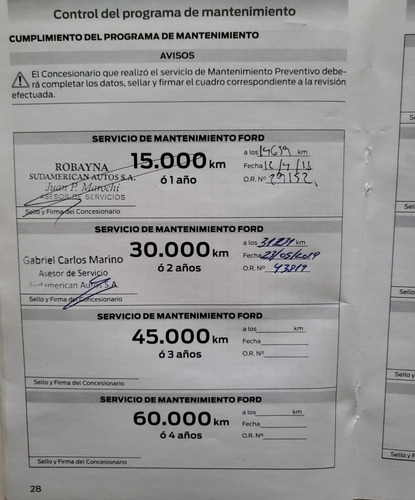 Control del programa de mantenimiento
CUMPLIMIENTO DEL PROGRAMA DE MANTENIMIENTO
AVISOS
El Concesionario que realizó el servicio de Mantenimiento Preventivo debe-
rá completar los datos, sellar y firmar el cuadro correspondiente a la revisión
efectuada.
SERVICIO DE MANTENIMIENTO FORD
ROBAYNA
SUDAMERICAN AUTOS S.A.
Juan P. Marochi
ASESOR DE SERVICIOS
Sello y Firma del Concesionario
15.000 km
ó 1 año
a los 14639 km
Fecha
O.R. Nº 29152
SERVICIO DE MANTENIMIENTO FORD
Gabriel Carlos Marino
Asesor de Servicio
Sudamerican Autos S.A.
Sello y Firma del Concesionario
30.000 km
ó 2 años
a los km
Fecha 23/05/2019
O.R. Nº 43819
SERVICIO DE MANTENIMIENTO FORD
45.000 km
ó 3 años
a los km
Fecha
O.R. Nº
Sello y Firma del Concesionario
SERVICIO DE MANTENIMIENTO FORD
60.000 km
ó 4 años
a los km
Fecha
O.R. Nº
Sello y Firma del Concesionario
28